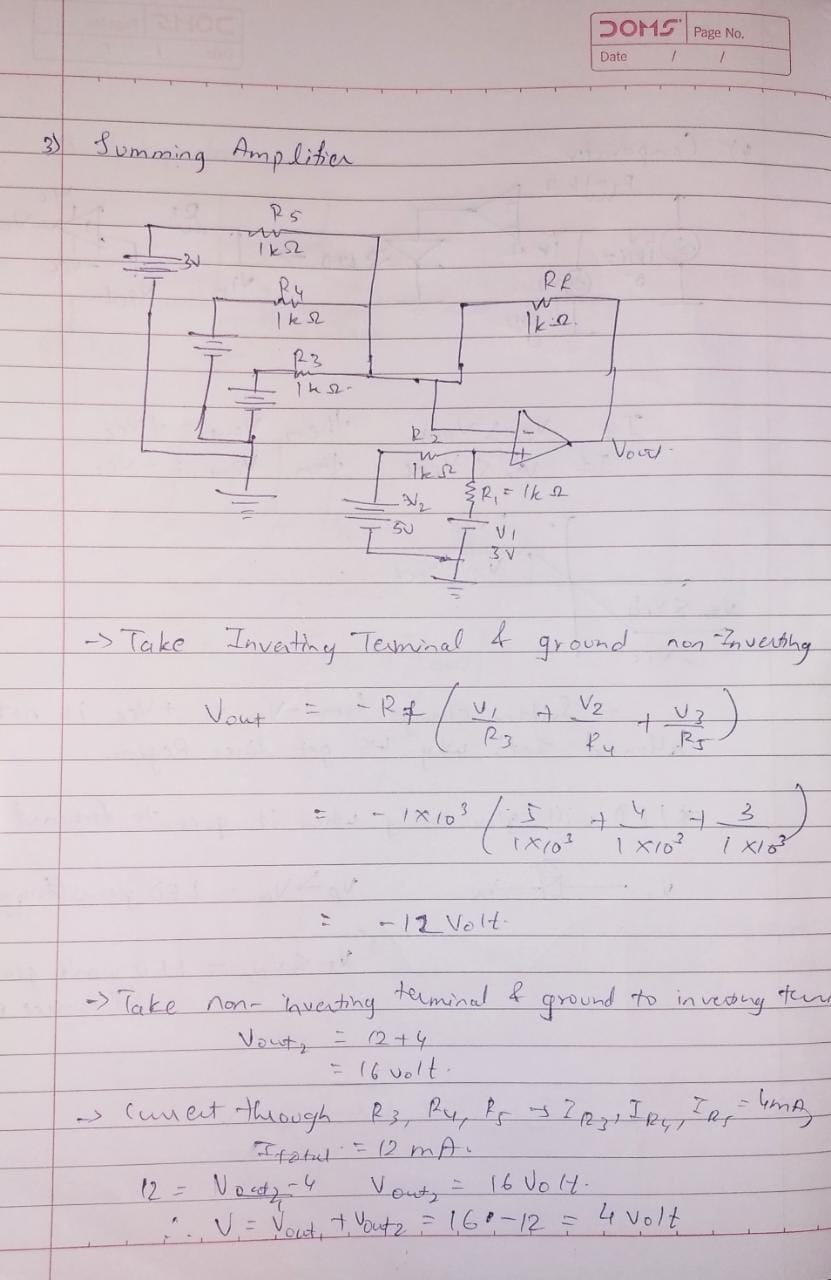 DOMS Page No.
Date / /
3) Summing Amplifier
R5
1kΩ
3V
R4
1kΩ
Rf
1kΩ.
R3
1kΩ-
R2
1kΩ
-
+
Vout.
R1 = 1kΩ
V2
5V
V1
3V
-> Take Inverting Terminal & ground non-Inverting
Vout = - Rf ( V1/R3 + V2/R4 + V3/R5 )
= - 1×10³ ( 5/1×10³ + 4/1×10³ + 3/1×10³ )
= -12 Volt.
-> Take non-inverting terminal & ground to inverting
Vout2 = 12+4
= 16 volt.
-> Current through R3, R4, R5 → IR3, IR4, IR5 = 4mA
Itotal = 12 mA.
12 = Vout2-4 Vout2 = 16 Volt.
∴ V = Vout1 + Vout2 = 16 -12 = 4 volt